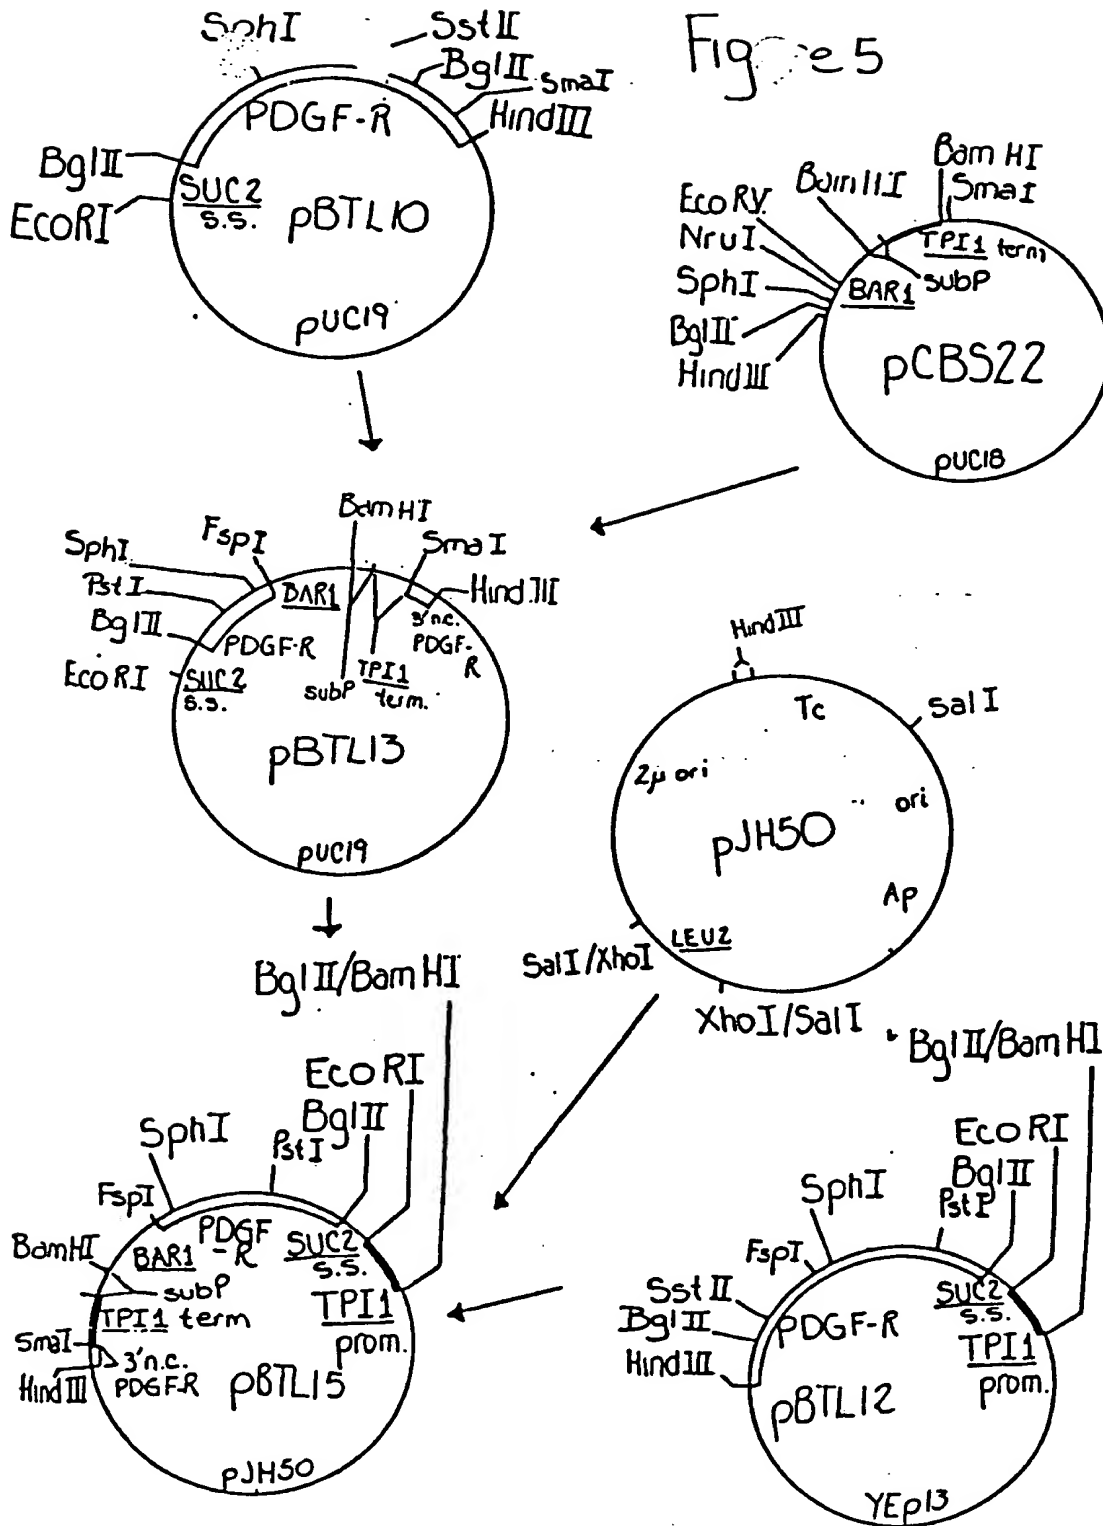 Fig e 5
SphI
SstII
BglII
SmaI
HindIII
PDGF-R
BglII
EcoRI
SUC2
s.s.
pBTL10
pUC19
BamHI
SmaI
BamHI
EcoRV
NruI
SphI
BglII
HindIII
TPI1 term
subP
BAR1
pCBS22
pUC18
BamHI
FspI
SphI
PstI
BglII
EcoRI
SmaI
HindIII
BAR1
3' n.c.
PDGF-
R
PDGF-R
SUC2
s.s.
subP
TPI1
term.
pBTL13
pUC19
HindIII
Tc
SalI
2µ ori
ori
pJH50
Ap
LEU2
SalI/XhoI
XhoI/SalI
BglII/BamHI
EcoRI
BglII
PstI
SphI
FspI
BamHI
PDGF
-R
BAR1
SUC2
s.s.
subP
TPI1 term
TPI1
prom.
SmaI
HindIII
3' n.c.
PDGF-R
pBTL15
pJH50
BglII/BamHI
EcoRI
BglII
PstI
SphI
FspI
SstII
BglII
HindIII
PDGF-R
SUC2
s.s.
TPI1
prom.
pBTL12
YEp13